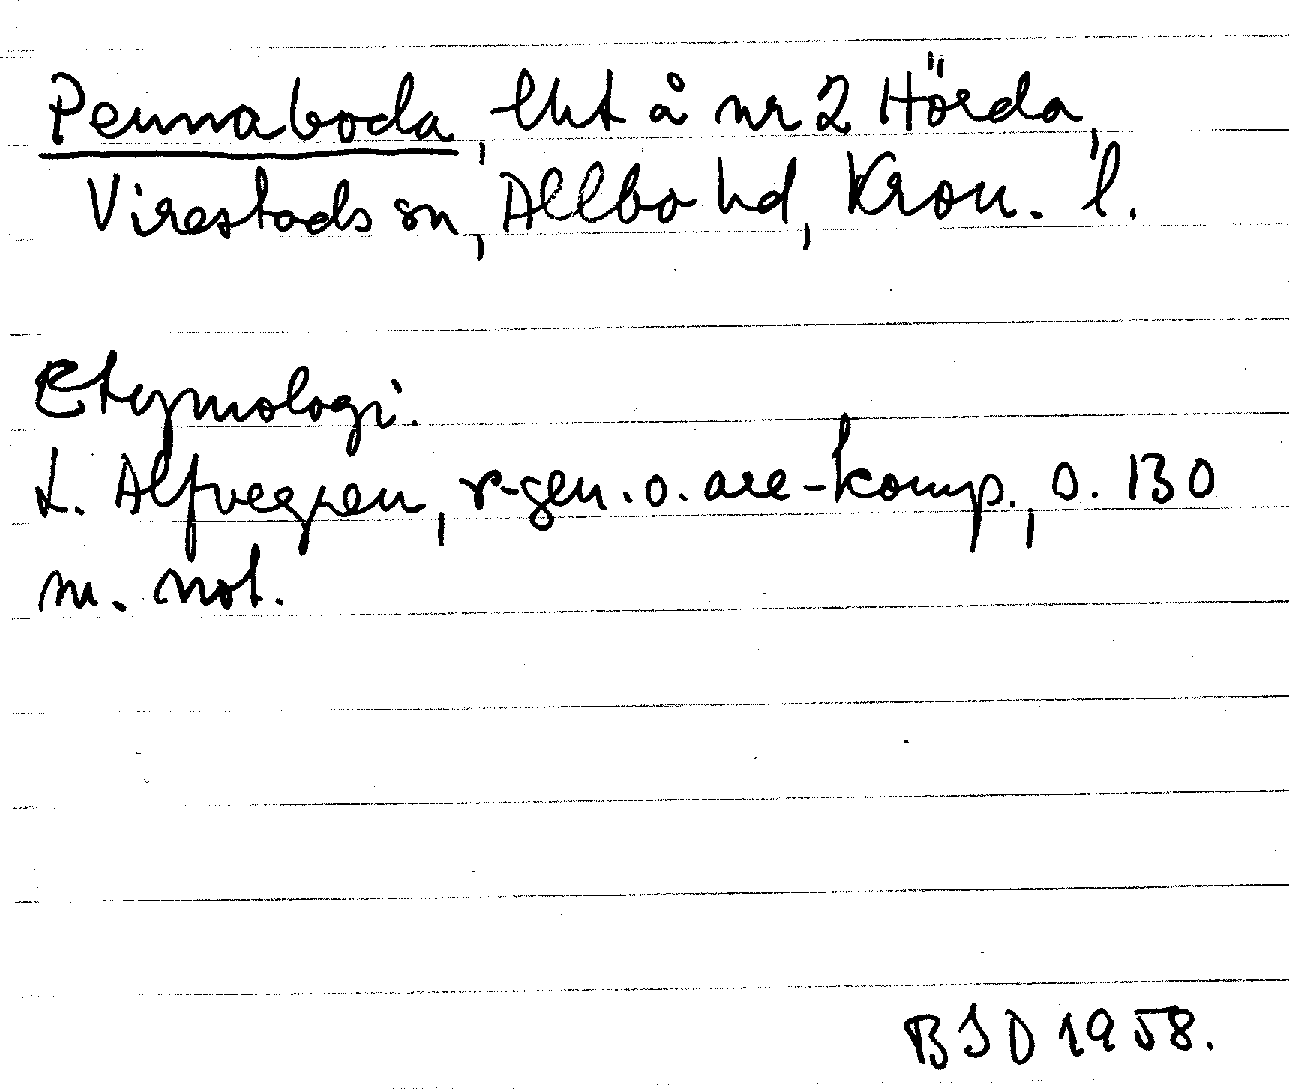 Pennaboda, lht å nr 2 Hörda,
Virestads sn, Allbo hd, Kron. l.
Etymologi.
L. Alfvegren, r-gen. o. are-komp., s. 130
m. not.
BJD 1958.